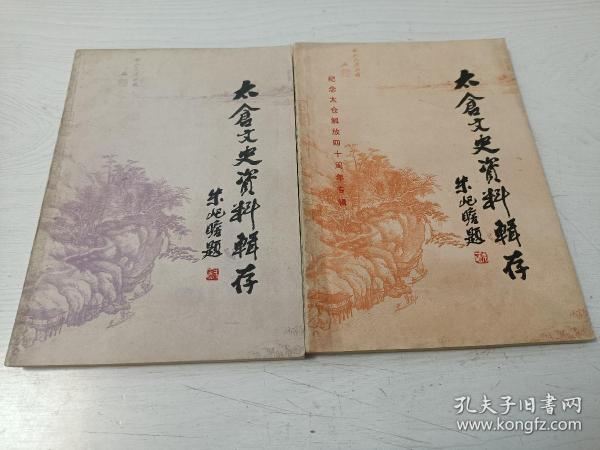 太倉文史資料輯存
朱屺瞻題
太倉文史資料輯存
朱屺瞻題
纪念太仓解放四十周年专辑
孔夫子旧书网
www.kongfz.com